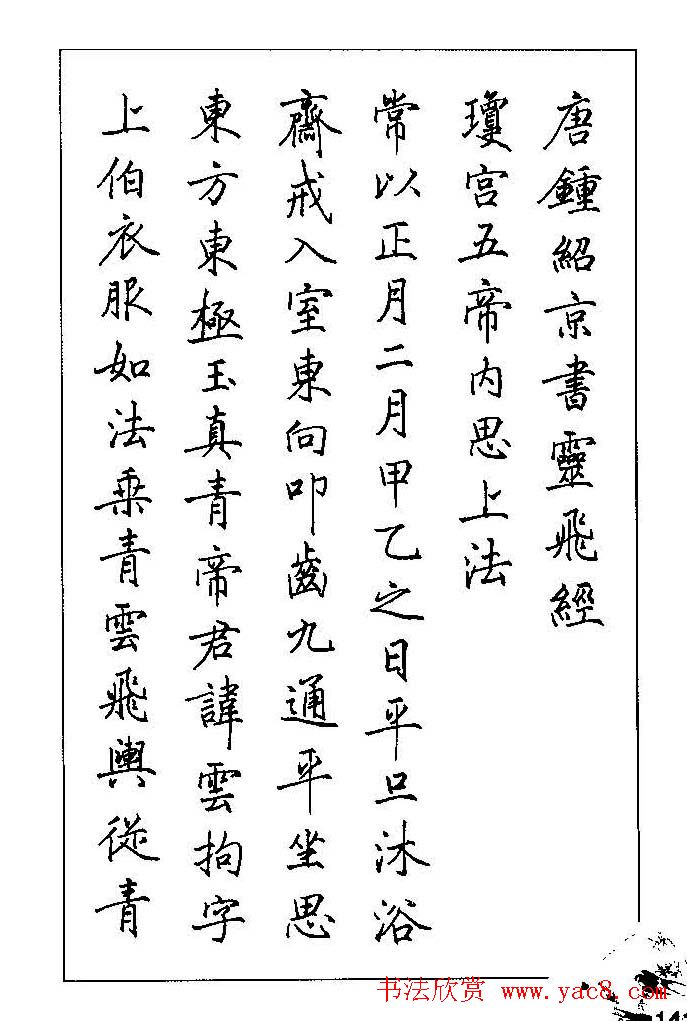 唐鍾紹京書靈飛經
瓊宮五帝内思上法
常以正月二月甲乙之日平旦沐浴
齋戒入室東向叩齒九通平坐思
東方東極玉真青帝君諱雲拘字
上伯衣服如法乗青雲飛輿從青
书法欣赏 www.yac8.com